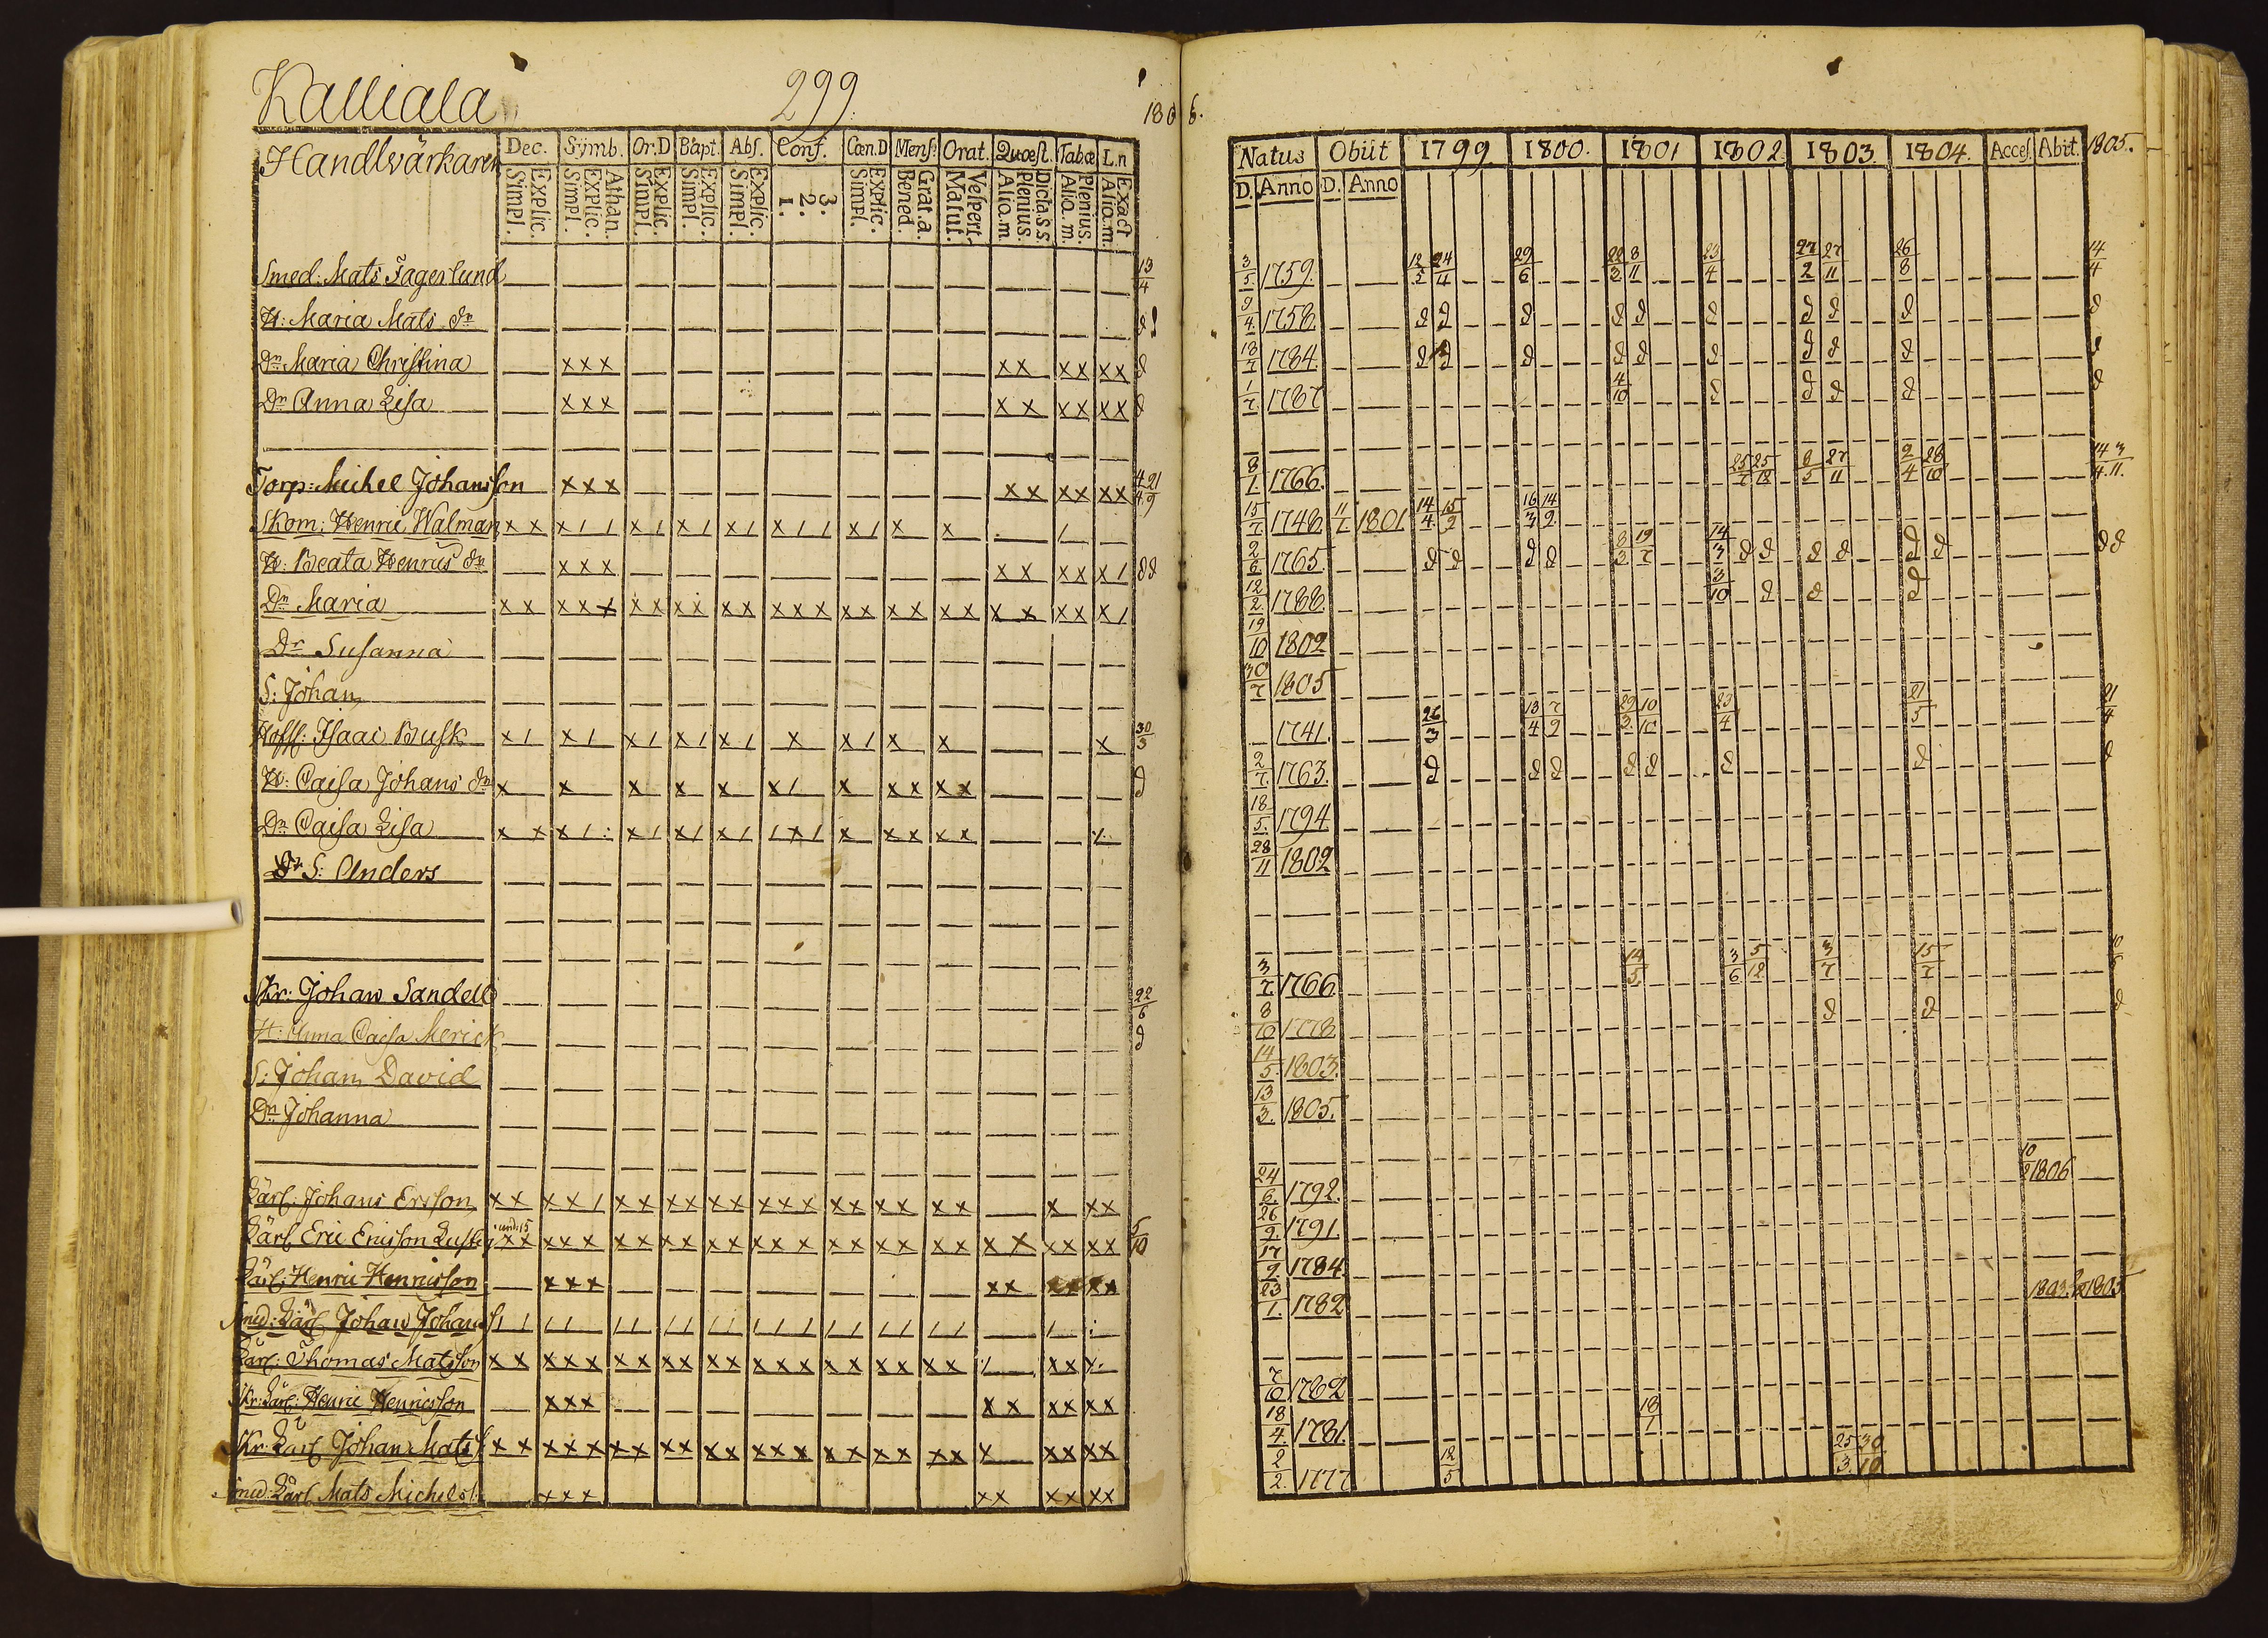 Kalliala 299. 1806.
Handtvärkaren Dec. Symb. Or.D Bapt. Abs. Conf. Cœn.D Mens. Orat. Quæst. Tabæ L.n
Explic. Simpl. Athan. Explic. Simpl. Explic. Simpl. Explic. Simpl. Explic. Simpl. 3. 2. 1. Explic. Simpl. Grat.a. Bened. Vespert. Matut. Dicta s.s. Plenius. Alio.m Plenius. Alio.m. Exact Alio.m.
Smed: Mats Fagerlund 13/4
H: Maria Mats dr d
Dr Maria Christina xxx xx xx xx d
Dr Anna Lisa xxx xx xx xx d
Torp: Michel Johansson xxx xx xx xx 4/4 21/9
Skom: Henric Walman xx x// x/ x/ x/ x// x/ x x /
H: Beata Henrics dr xxx xx xx x/ dd
Dr Maria xx xxx xx xx xx xxx xx xx xx xx xx x/
Dr Susanna
S: Johan
Isaac Busk x/ x/ x/ x/ x/ x x/ x x x 30/3
H: Caisa Johans dr x x x x x x/ x xx xx d
Dr Caisa Lisa xx x/. x/ x/ x/ /x/ x xx xx
S: Anders
Skr: Johan Sandell 22/6
H: Anna Caisa Merick d
S: Johan David
Dr Johanna
Lärl: Johan Ersson xx xx/ xx xx xx xxx xx xx xx x xx
Lärl Eric Ericsson xx xxx xx xx xx xxx xx xx xx xx xx xx 5/10
Lärl: Henric Henricsson xxx xx xx xx
Smed: Lärl Johan Johans // // // // // /// // // // /
Lärl: Thomas Matsson xx xxx xx xx xx xxx xx xx xx / xx
Skr: Lärl: Henric Henricsson xxx xx xx xx
Skr. Lärl Johan Mats xx xxx xx xx xx xxx xx xx xx x xx xx
Smed: Lärl Mats Michels xxx xx xx xx
Natus Obiit 1799. 1800. 1801 1802 1803. 1804. Acces. Abiit. 1805.
D. Anno D. Anno
3/5. 1759. 12/5 24/11 29/6 22/3 8/11 23/4 27/2 27/11 26/8 14/4
9/4. 1758. d d d d d d d d d d
13/7 1784. d d d d d d d d d d
1/7. 1787 4/10 d d d d d
8/1. 1766. 25/7 25/12 8/5 27/11 2/4 28/10 14/4 3/11.
15/7 1746. 11/1 1801 14/4. 15/9 16/3 14/9.
2/6 1765. d d d d 8/3 19/7 14/3 d d d d d d dd
12/2. 1788. 3/10 d d d
19/10 1802
30/7 1805
1741. 26/3 13/4 7/9 29/3. 10/10 23/4 21/5 21/4
2/7. 1763. d d d d d d d d
18/5. 1794
28/11 1802
3/7. 1766 14/5. 3/6 5/12 3/7 15/7
8/10 1778 d d d
14/5. 1803.
13/3. 1805.
24/6. 1792. 10/2 1806
26/9. 1791.
17/9. 1784.
23/1. 1782 1803. 1805
7/10 1762
18/4. 1781. 18/1
2/2. 1777 12/5 25/3. 30/10